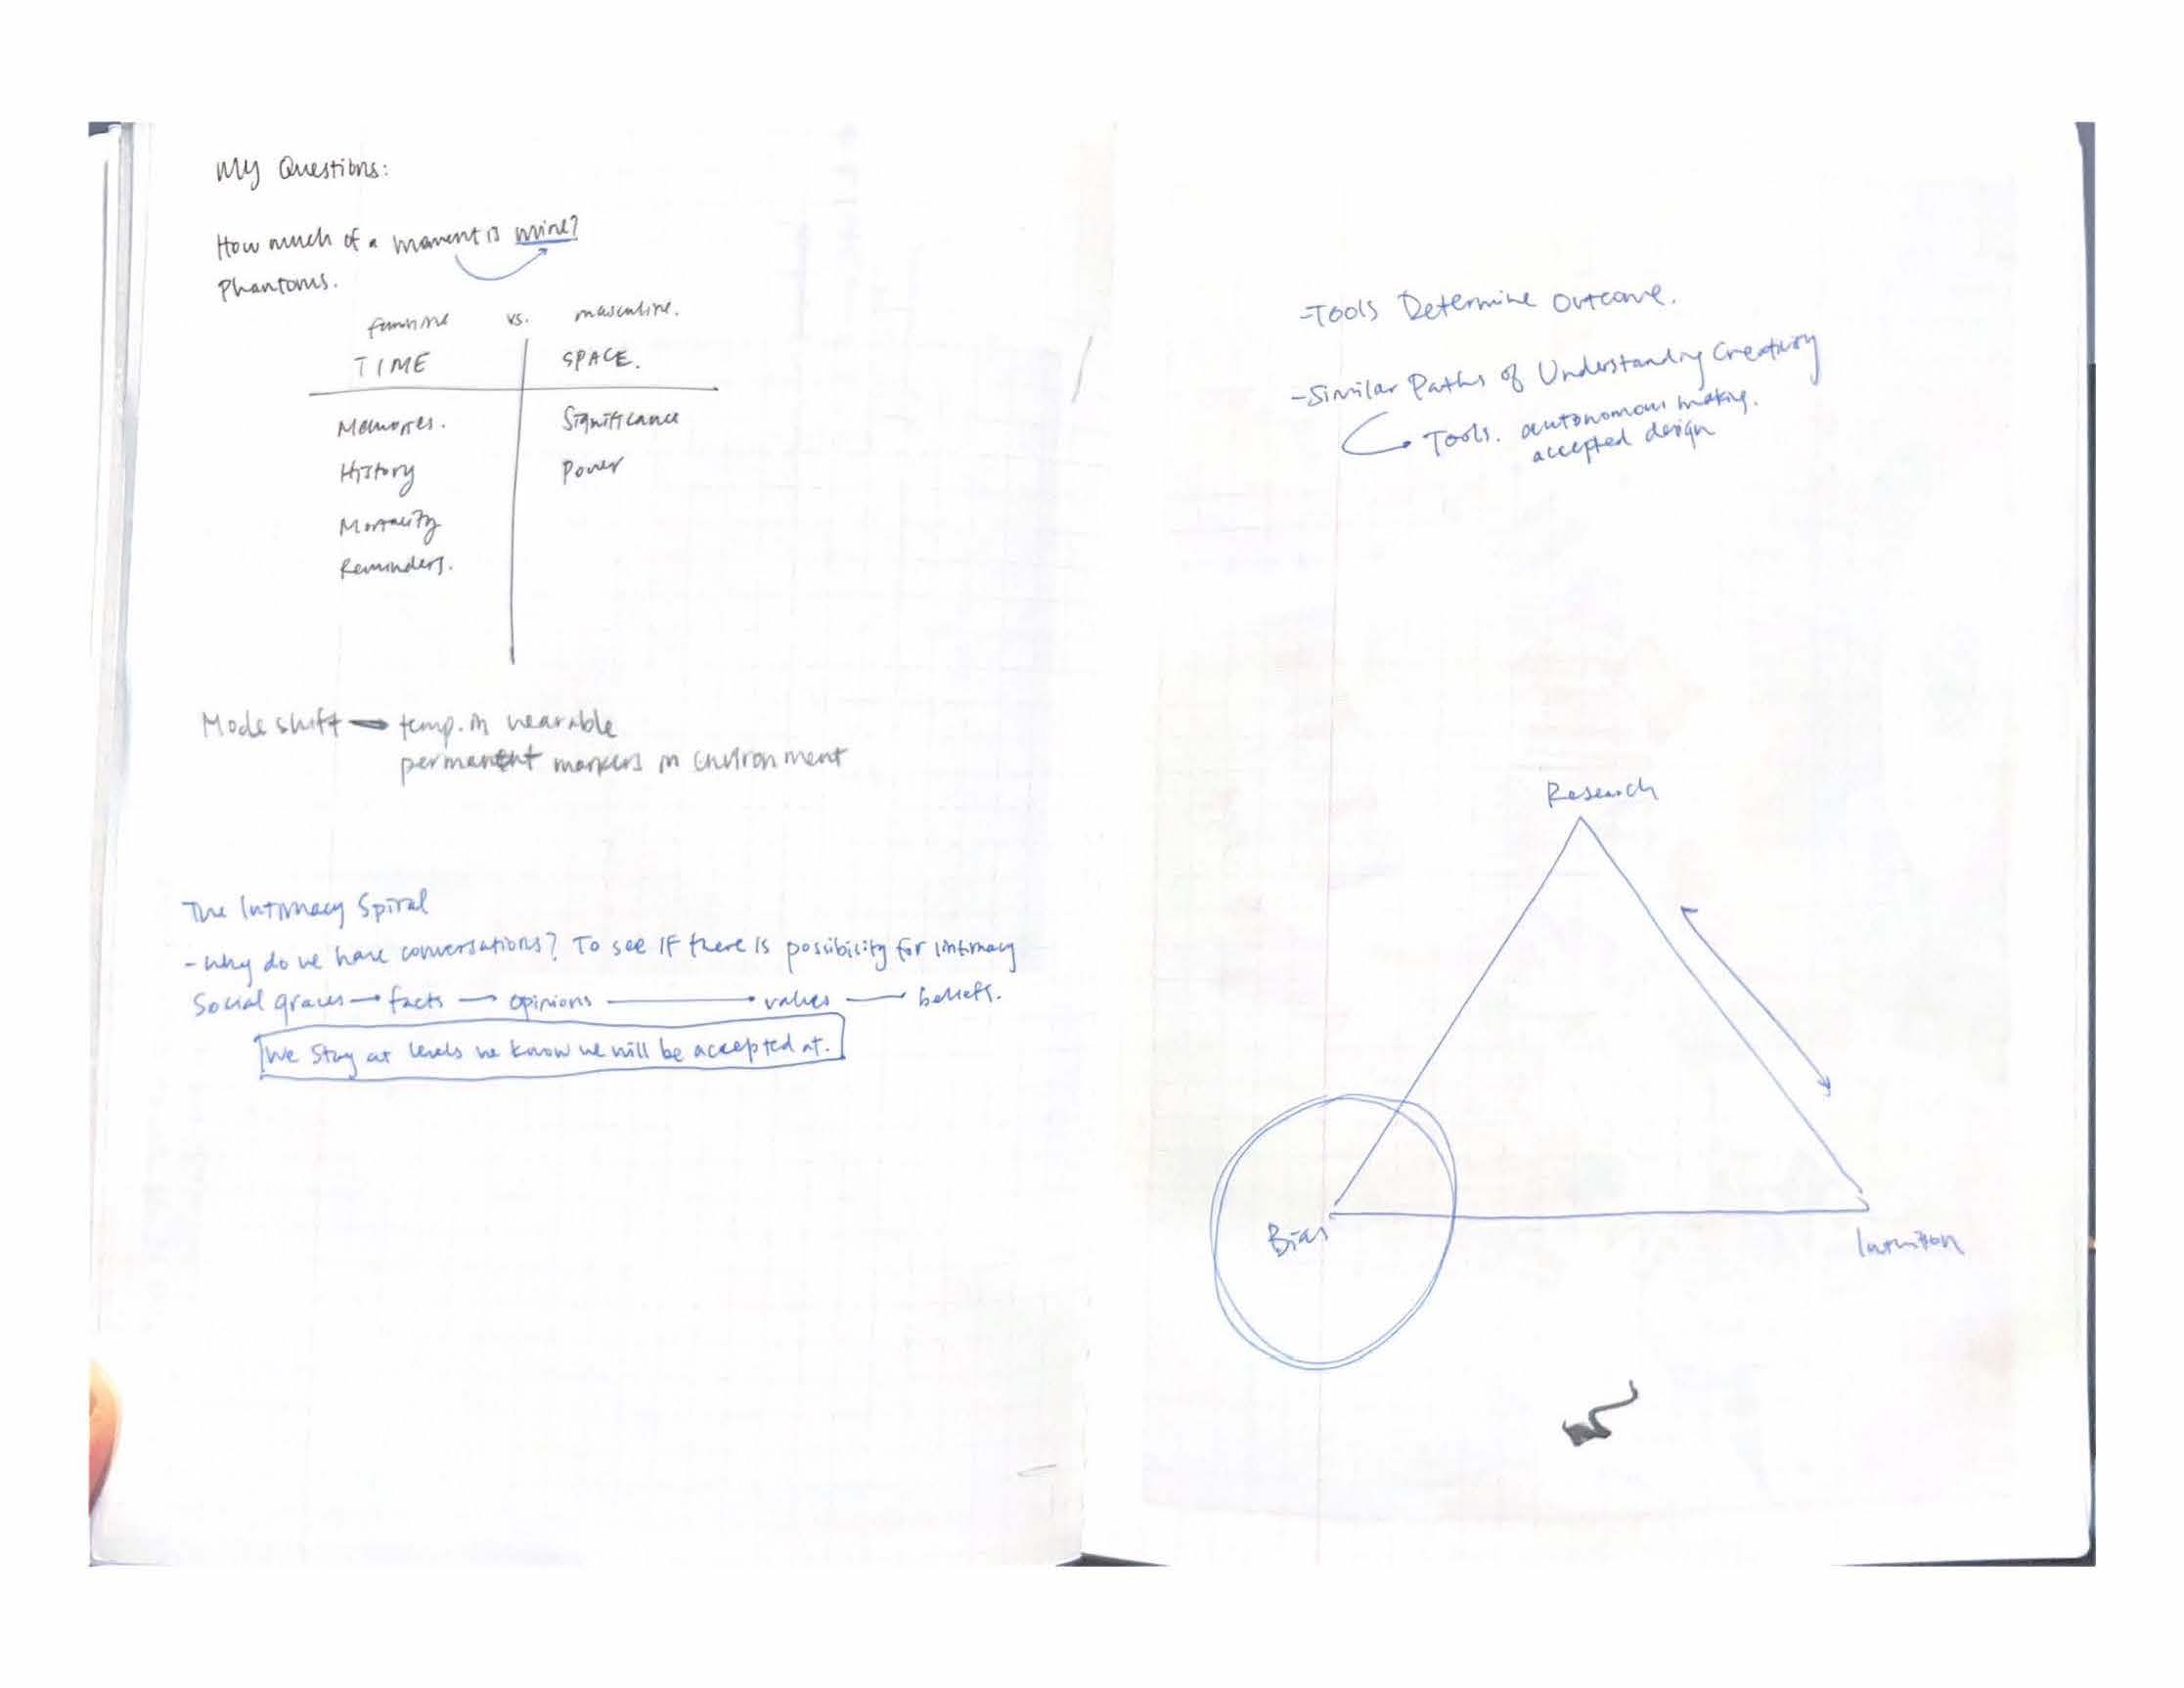 My Questions:
How much of a moment is mine?
Phantoms.
feminine vs. masculine.
TIME SPACE.
Memories. Significance
History Power
Mortality
Reminders.
Mode shift → temp. in wearable
permanent markers in environment
The Intimacy Spiral
- Why do we have conversations? To see if there is possibility for intimacy
Social graces → facts → opinions → values → beliefs.
We stay at levels we know we will be accepted at.
- Tools Determine Outcome.
- Similar Paths of Understanding Creativity
Tools. autonomous making.
accepted design
Research
Bias
Intuition